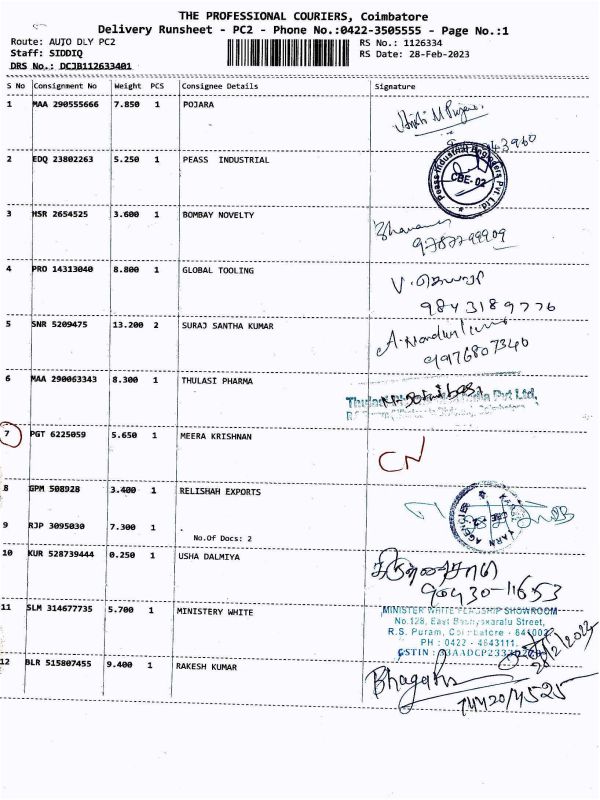 THE PROFESSIONAL COURIERS, Coimbatore
Delivery Runsheet - PC2 - Phone No.:0422-3505555 - Page No.:1
Route: AUTO DLY PC2 RS No.: 1126334
Staff: SIDDIQ RS Date: 28-Feb-2023
DRS No.: DCJB112633401
S No Consignment No Weight PCS Consignee Details Signature
1 MAA 290555666 7.850 1 POJARA
2 EDQ 23802263 5.250 1 PEASS INDUSTRIAL
Peass Industrial Engineers Pvt Ltd.
CBE-02
3 HSR 2654525 3.600 1 BOMBAY NOVELTY
9787799909
4 PRO 14313040 8.800 1 GLOBAL TOOLING
9843189776
5 SNR 5209475 13.200 2 SURAJ SANTHA KUMAR
9976807340
6 MAA 290063343 8.300 1 THULASI PHARMA
Pvt Ltd,
7 PGT 6225059 5.650 1 MEERA KRISHNAN
CN
8 GPM 508928 3.400 1 RELISHAH EXPORTS
YARN AGENCIES
9 RJP 3095030 7.300 1
No.Of Docs: 2
10 KUR 528739444 0.250 1 USHA DALMIYA
90430-11653
11 SLM 314677735 5.700 1 MINISTERY WHITE
MINISTER WHITE FLAGSHIP SHOWROOM
No.128, East Street,
R.S. Puram, Coimbatore - 641002
PH : 0422 - 4643111.
GSTIN :
28/2/2023
12 BLR 515807455 9.400 1 RAKESH KUMAR